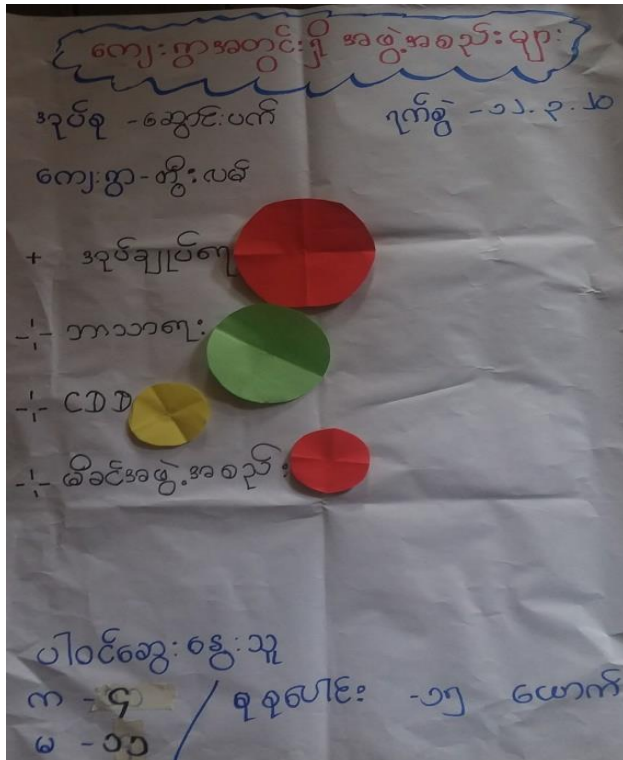 ကျေးရွာအတွင်းရှိ အဖွဲ့အစည်းများ
အုပ်စု - ဆောင်းပက် ရက်စွဲ - ၁၂.၃.၂၀
ကျေးရွာ - တွီးလမ်
+ အုပ်ချုပ်ရေး
-¦- ဘာသာရေး
-¦- CDD
-¦- မိခင်အဖွဲ့အစည်း
ပါဝင်ဆွေးနွေးသူ
က - ၄ / စုစုပေါင်း - ၁၅ ယောက်
မ - ၁၁